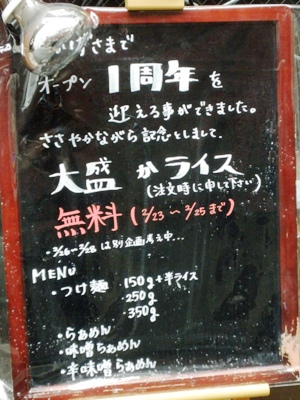 げさまで
オープン 1周年を
迎える事ができました。
ささやかながら記念としまして、
大盛 か ライス
(注文時に申して下さい)
無料 (2/23〜2/25まで)
・2/26〜2/28 は別企画考え中…
MENU
・つけ麺 150g+半ライス
・250g
・350g
・らぁめん
・味噌らぁめん
・辛味噌らぁめん